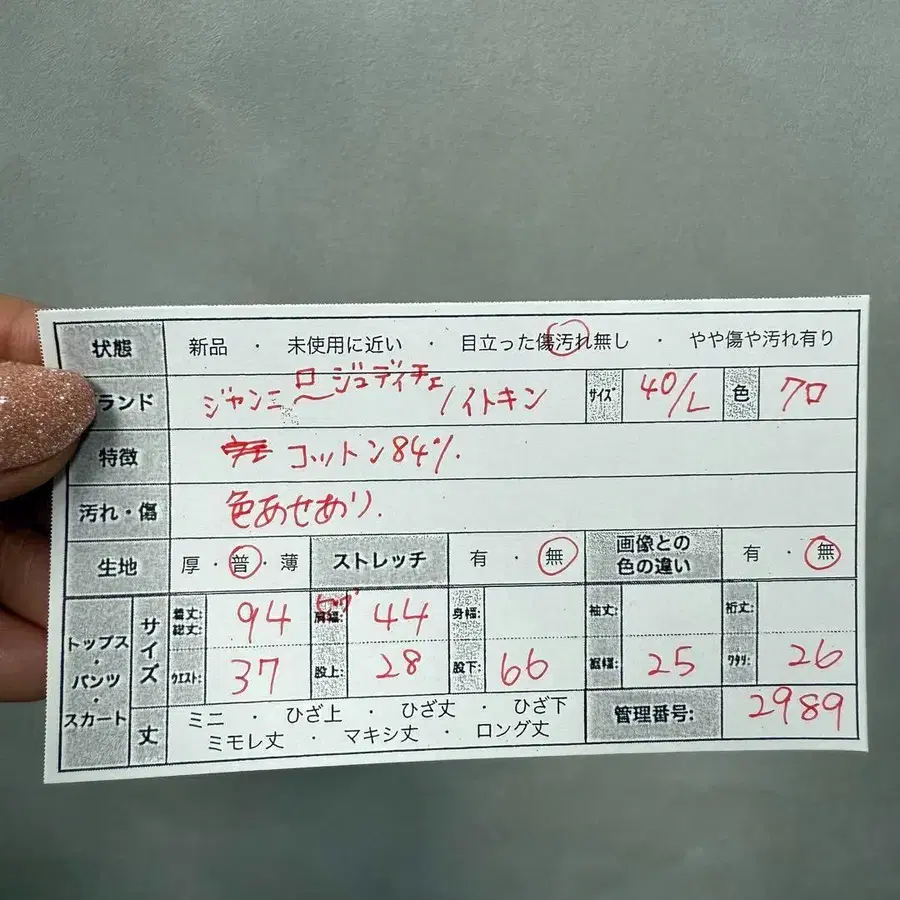 状態 新品 ・ 未使用に近い ・ 目立った傷汚れ無し ・ やや傷や汚れ有り
ランド ジャンニロ〜ジュディチェ/イトキン サイズ 40/L 色 クロ
特徴 コットン84%.
汚れ・傷 色あせあり.
生地 厚・普・薄 ストレッチ 有・無 画像との色の違い 有・無
トップス・パンツ・スカート サイズ 着丈:総丈: 94 肩幅: ヒップ 44 身幅: 袖丈: 裄丈:
ウエスト: 37 股上: 28 股下: 66 裾幅: 25 ワタリ: 26
丈 ミニ ・ ひざ上 ・ ひざ丈 ・ ひざ下
ミモレ丈 ・ マキシ丈 ・ ロング丈
管理番号: 2989